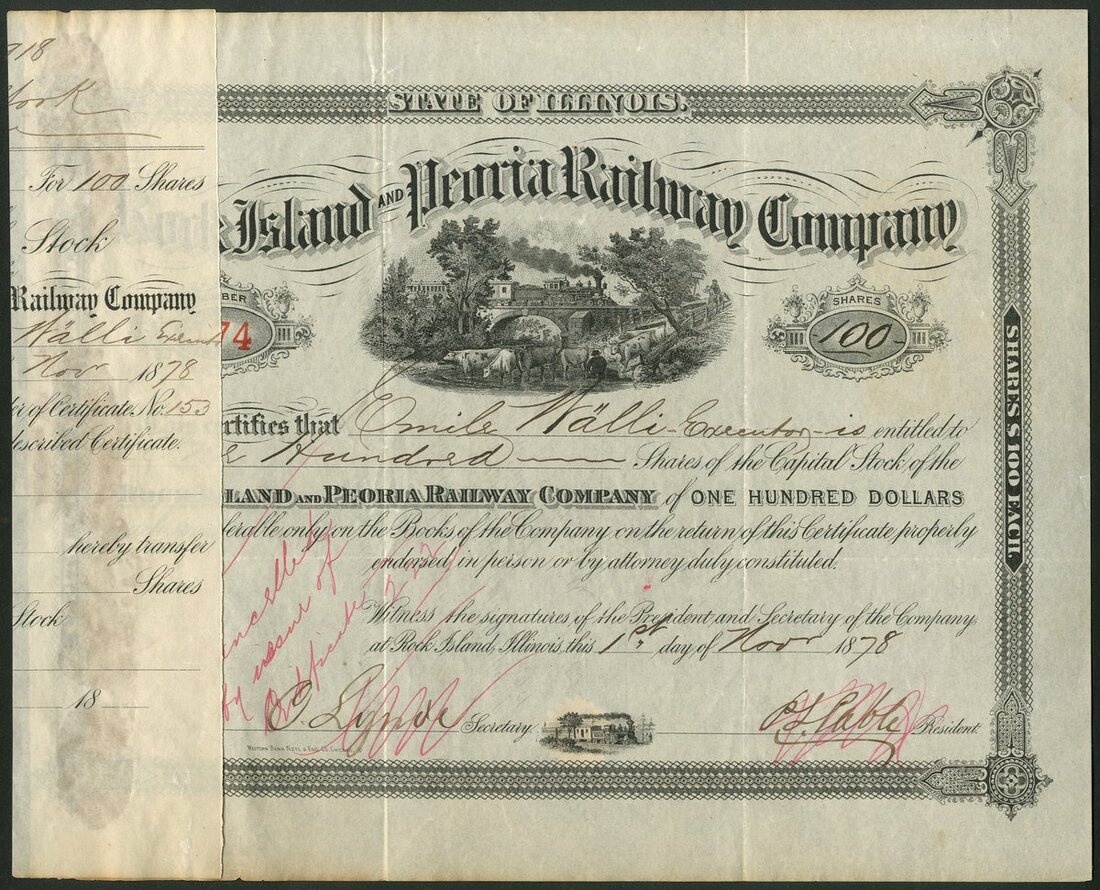 918
For 100 Shares
Stock
Railway Company
Wälli Execut
Nov 1878
er of Certificate No. 153
escribed Certificate.
hereby transfer
Shares
Stock
18
STATE OF ILLINOIS.
Island AND Peoria Railway Company
BER
74
SHARES
100
rtifies that Emile Wälli Executor is entitled to
e Hundred Shares of the Capital Stock of the
SLAND AND PEORIA RAILWAY COMPANY of ONE HUNDRED DOLLARS
erable only on the Books of the Company on the return of this Certificate properly
endorsed, in person or by attorney duly constituted.
Witness the signatures of the President and Secretary of the Company
at Rock Island, Illinois, this 1st day of Nov 1878
ancelled
by issue of
Secretary.
President.
WESTERN BANK NOTE & ENG. CO. CHICAGO
SHARES $100 EACH.